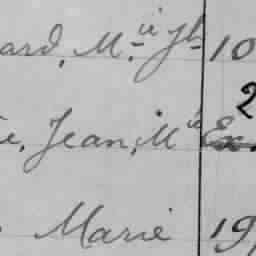 ard, M.ie Jh 10
2
e, Jean, M.ie Ex.
Marie 19